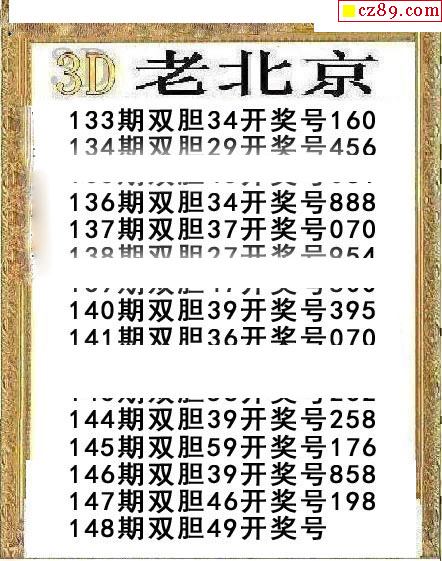 cz89.com
3D 老北京
133期双胆34开奖号160
134期双胆29开奖号456
136期双胆34开奖号888
137期双胆37开奖号070
138期双胆27开奖号954
140期双胆39开奖号395
141期双胆36开奖号070
144期双胆39开奖号258
145期双胆59开奖号176
146期双胆39开奖号858
147期双胆46开奖号198
148期双胆49开奖号